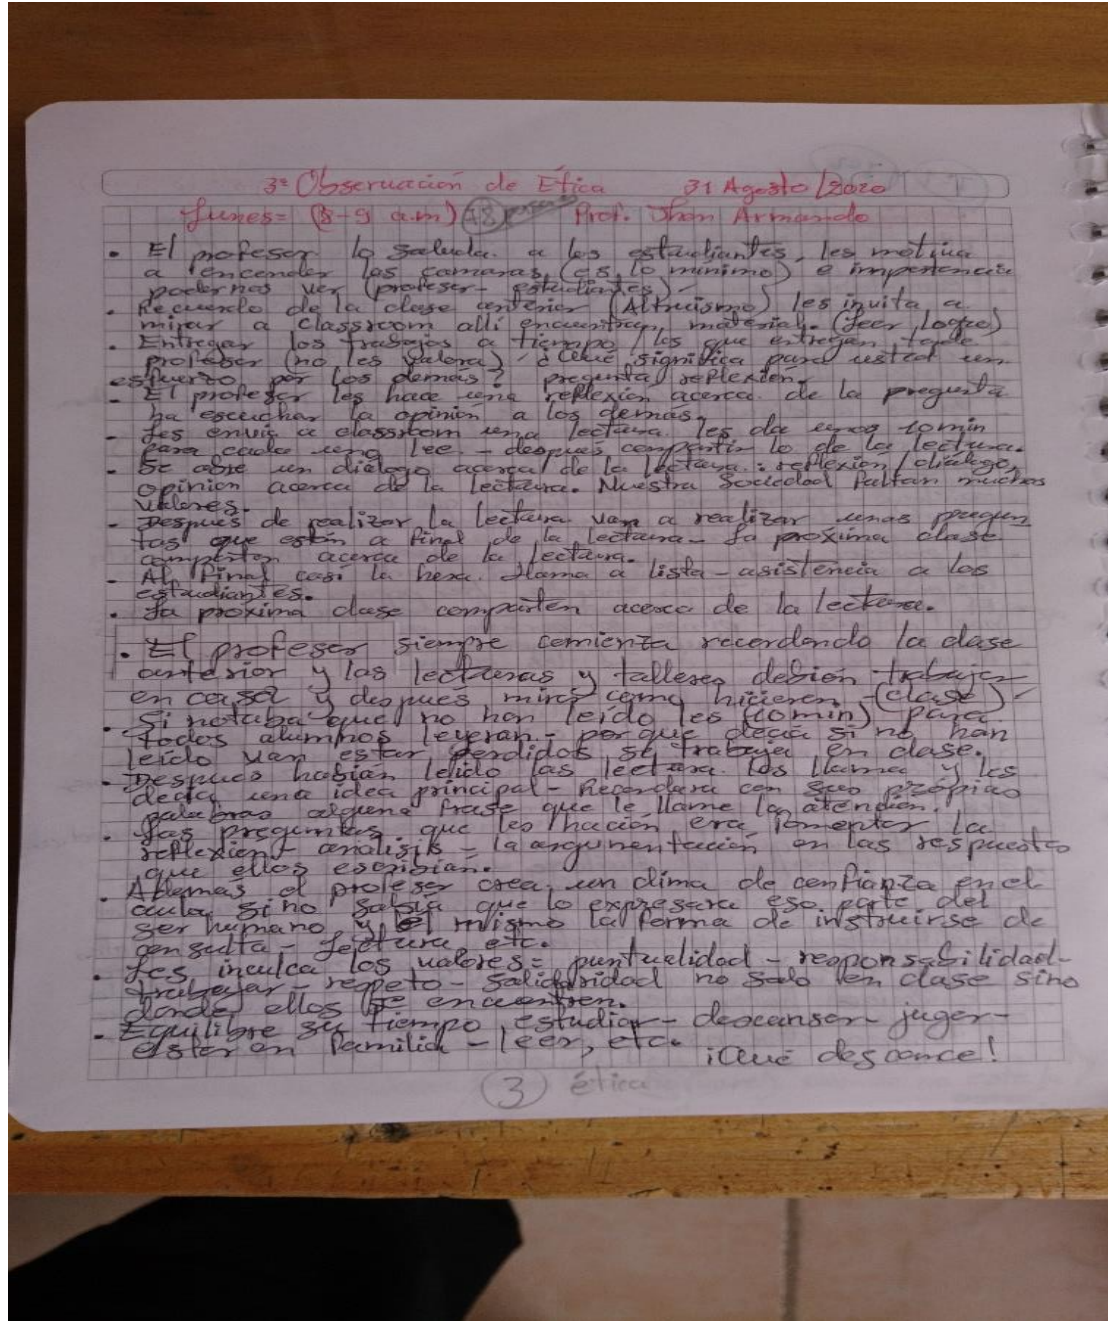 3ª Observación de Ética 31 Agosto/2020
Lunes= (8-9 a.m) 48 Prof. Jhon Armando
• El profesor lo saluda a los estudiantes, les motiva
a encender las camaras, (es lo minimo) e importancia
podernos ver (profesor-estudiantes)-
• Recuerdo de la clase anterior (Altruismo) les invita a
mirar a classroom allí encuentran material. (leer, logro)
• Entregar los trabajos a tiempo / los que entregan tarde
profesor (no les valora) ¿Qué significa para usted un
esfuerzo por los demás? pregunta reflexión.
• El profesor les hace una reflexión acerca de la pregunta
ha escuchar la opinión a los demás.
- Les envía a classroom una lectura les da unos 10min
para cada uno lee - después compartir lo de la lectura.
- Se abre un diálogo acerca de la lectura: reflexión/diálogo,
opinion acerca de la lectura. Nuestra Sociedad faltan muchos
valores.
- Después de realizar la lectura van a realizar unas pregun
tas que están a final de la lectura- La proxima clase
comparten acerca de la lectura.
- Al final casi la hora. Llama a lista - asistencia a los
estudiantes.
• La proxima clase comparten acerca de la lectura.
• El profesor siempre comienza recordando la clase
anterior y las lecturas y talleres debión trabajar
en casa y después mira como hicieron - (clase)-
• Si notaba que no han leído les (10min) para
todos alumnos leyeran - porque decía si no han
leído van estar perdidos se trabaja en clase.
• Despues habían leído las lectura los llama y les
decía una idea principal - Recordara con sus propias
palabras alguna frase que le llame la atención.
• Las preguntas que les hación era fomentar la
reflexión - análisis - la argumentación en las respuesta
que ellos escribían.
• Además el profesor crea un clima de confianza en el
aula, sino sabía que lo expresara eso parte del
ser humano y el mismo la forma de instruirse de
consulta - Lectura, etc.
• Les inculca los valores= puntualidad - responsabilidad-
trabajar - respeto - Solidaridad no solo en clase sino
donde ellos se encuentren.
• Equilibre su tiempo, estudiar - descansar - jugar -
estar en familia - leer, etc. ¡Qué descance!
3 ética